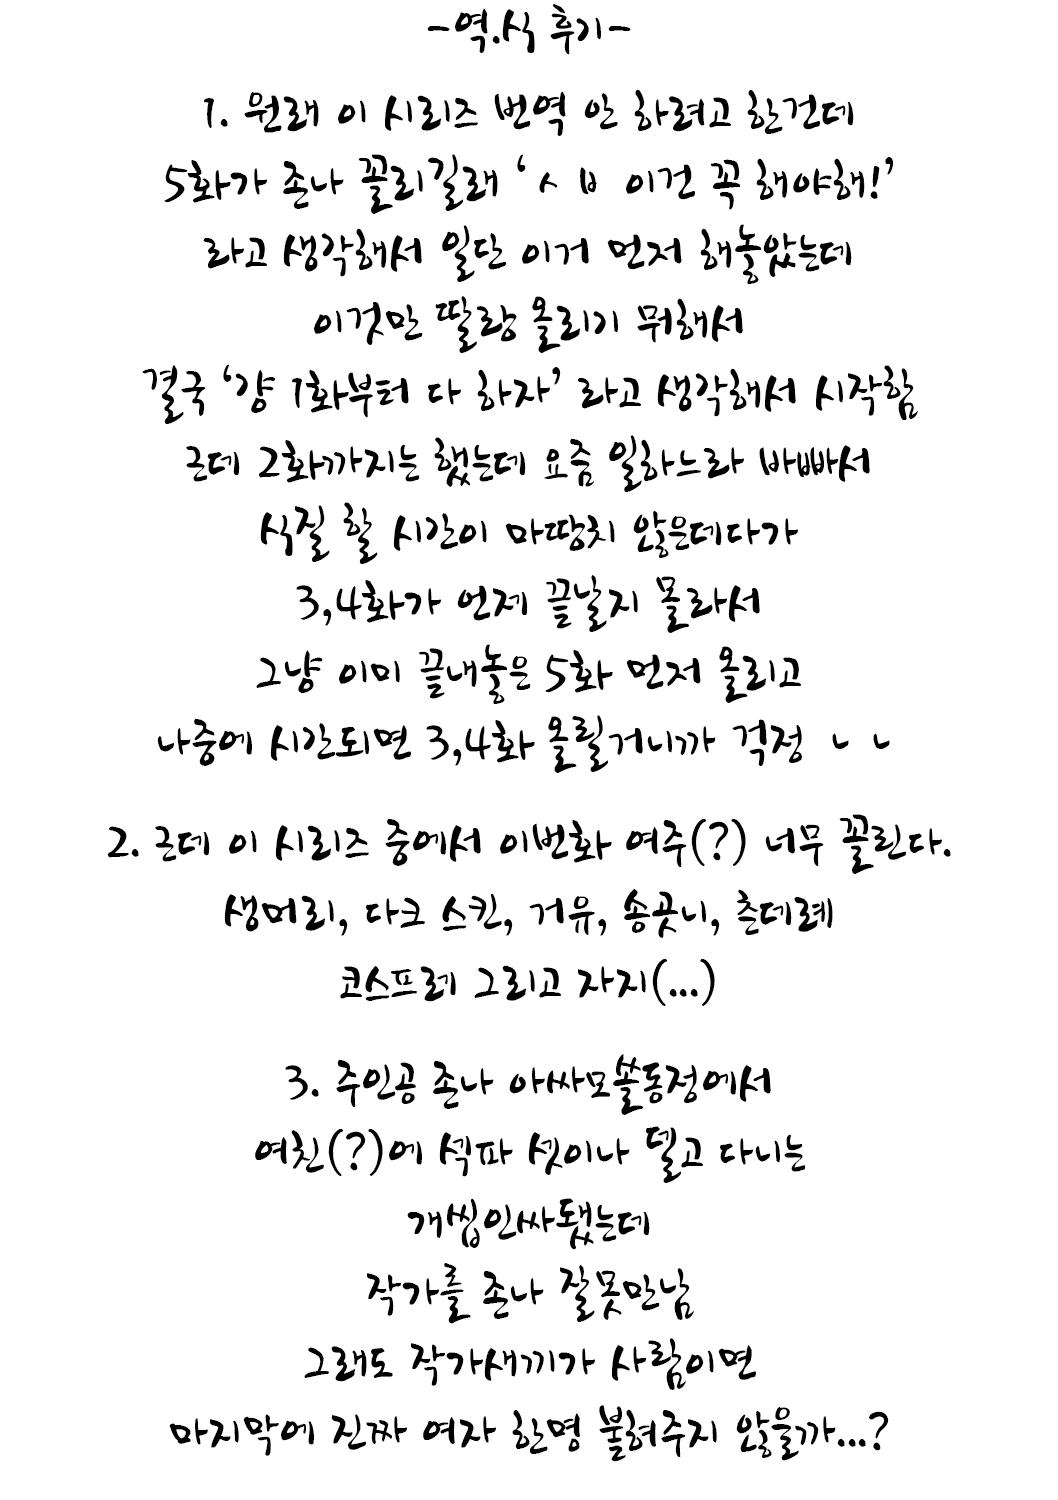 -역.식 후기-
1. 원래 이 시리즈 번역 안 하려고 한건데
5화가 존나 꼴리길래 ‘ㅅㅂ 이건 꼭 해야해!’
라고 생각해서 일단 이거 먼저 해놓았는데
이것만 딸랑 올리기 뭐해서
결국 ‘걍 1화부터 다 하자’ 라고 생각해서 시작함
근데 2화까지는 했는데 요즘 일하느라 바빠서
식질 할 시간이 마땅치 않은데다가
3,4화가 언제 끝날지 몰라서
그냥 이미 끝내놓은 5화 먼저 올리고
나중에 시간되면 3,4화 올릴거니까 걱정 ㄴㄴ
2. 근데 이 시리즈 중에서 이번화 여주(?) 너무 꼴린다.
생머리, 다크 스킨, 거유, 송곳니, 츤데레
코스프레 그리고 자지(...)
3. 주인공 존나 아싸모쏠동정에서
여친(?)에 섹파 셋이나 델고 다니는
개씹인싸됐는데
작가를 존나 잘못만남
그래도 작가새끼가 사람이면
마지막에 진짜 여자 한명 붙혀주지 않을까...?